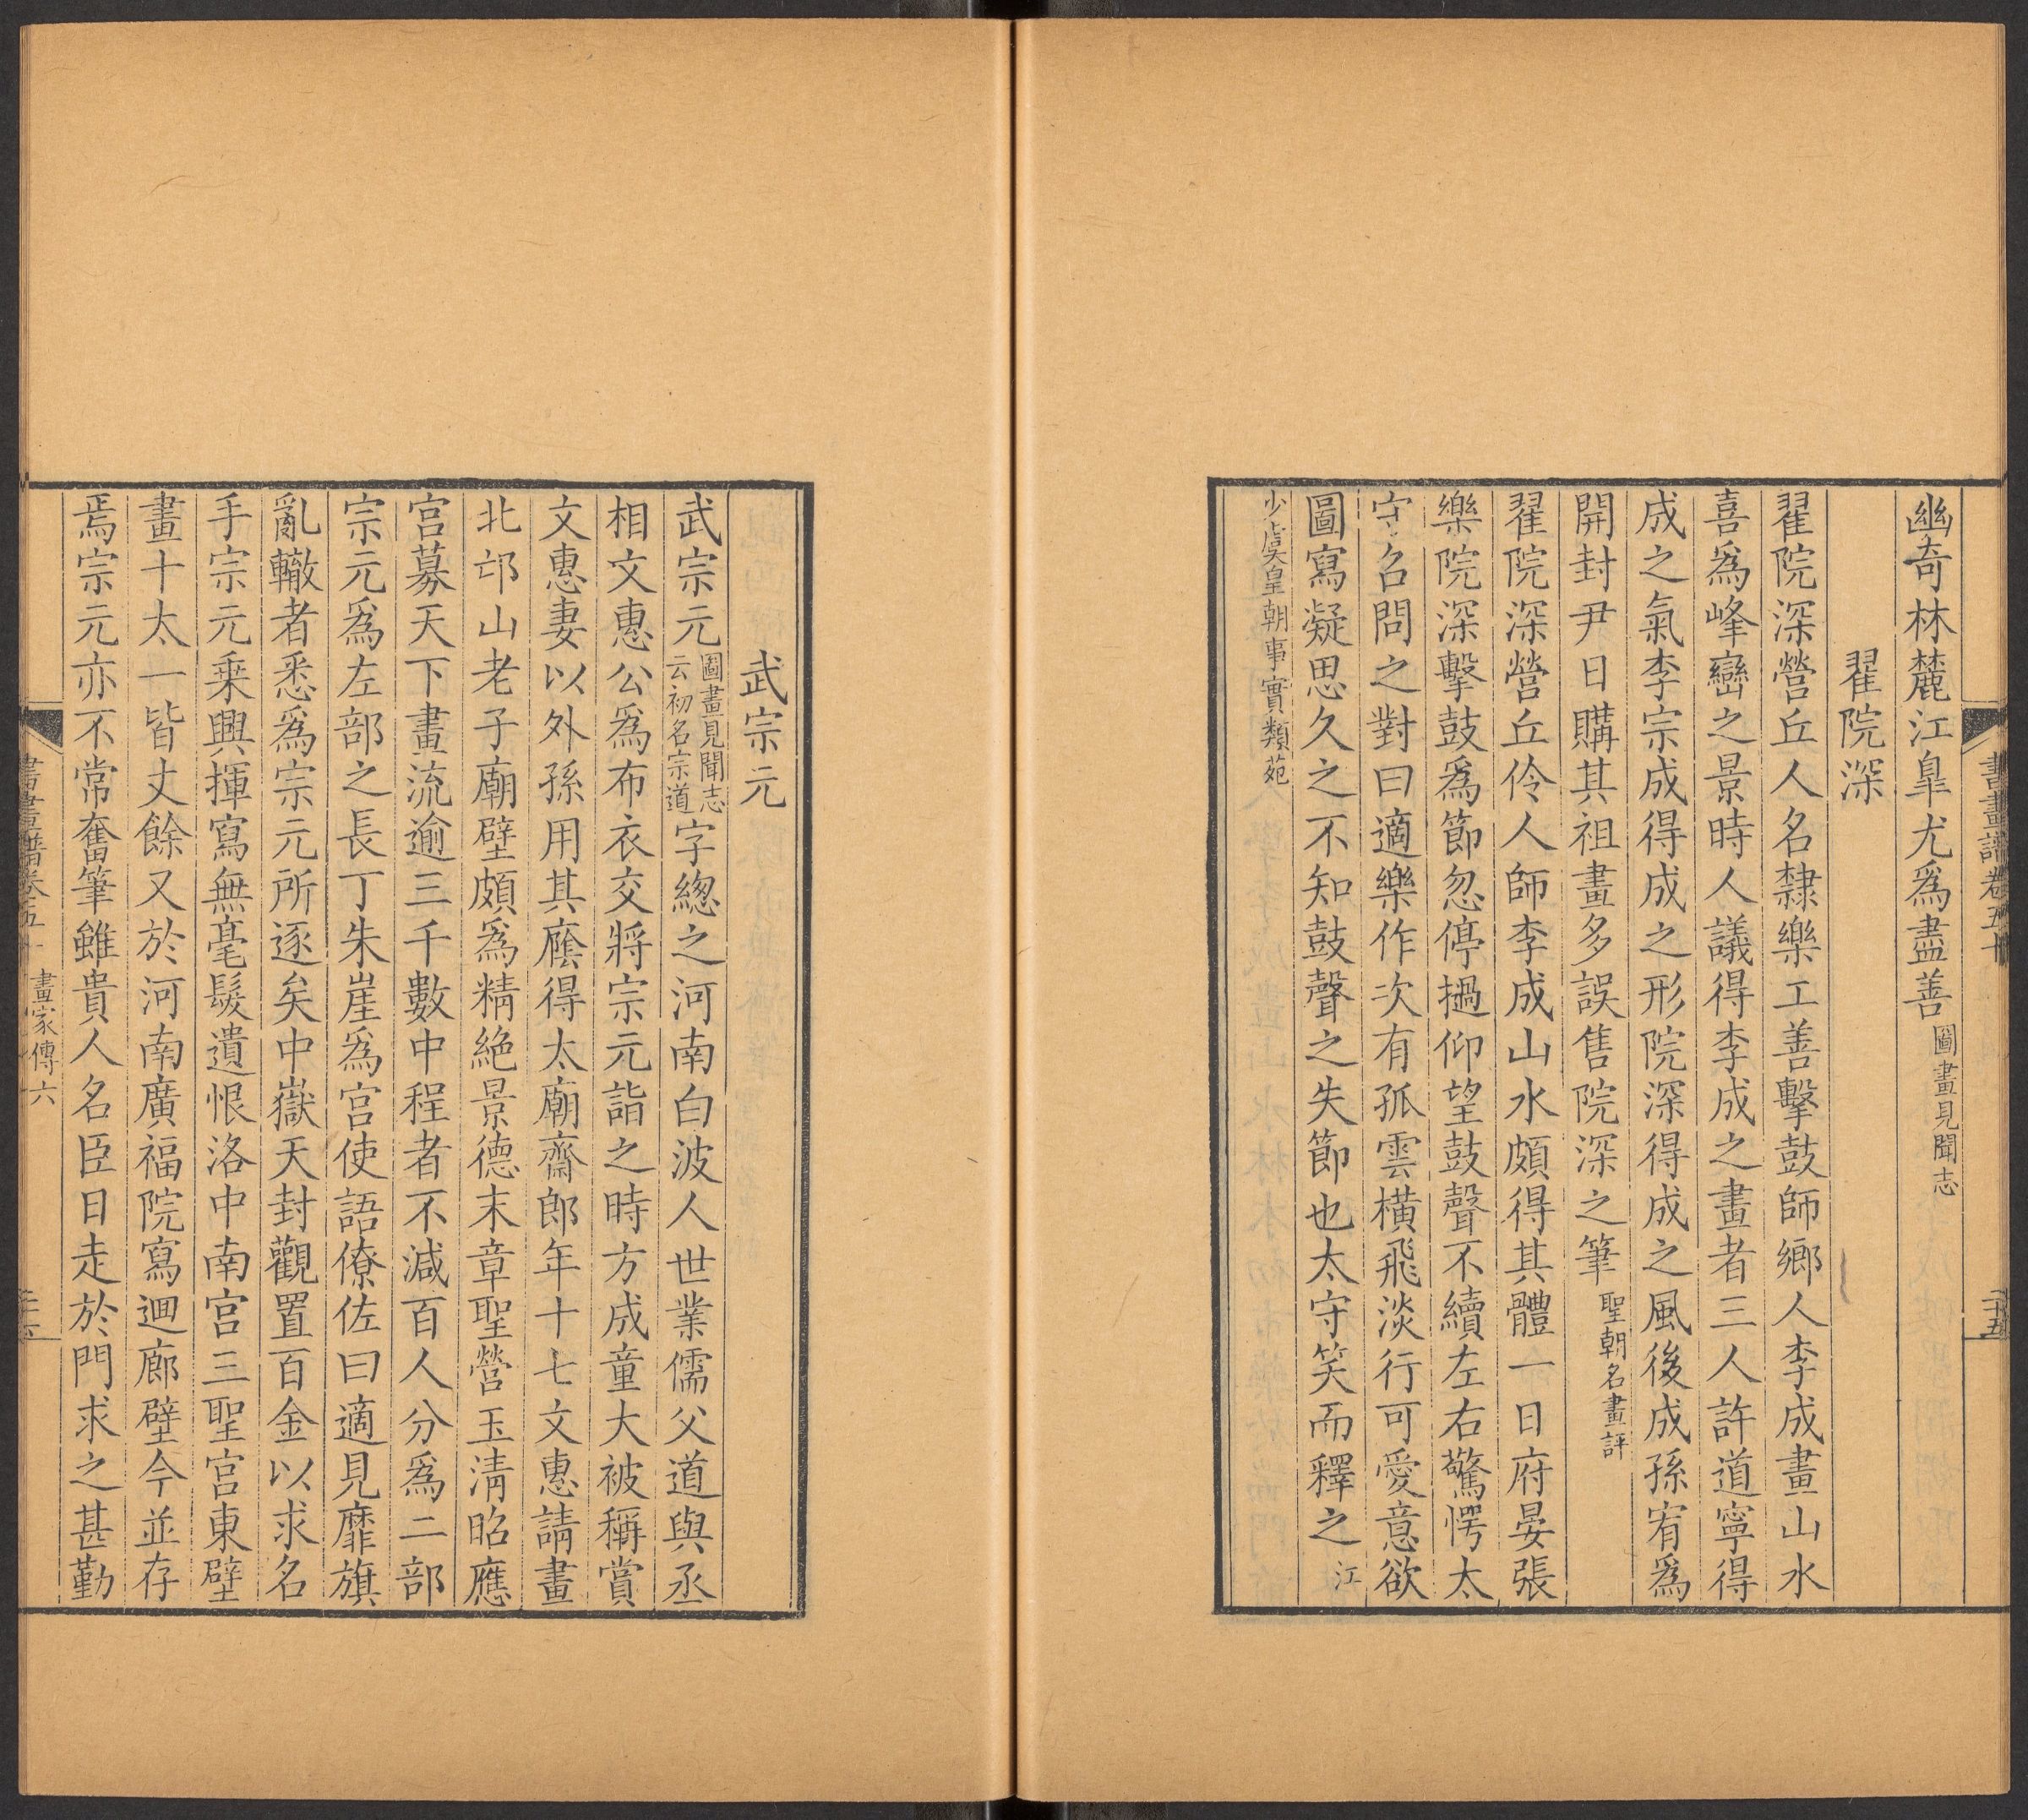 書畫譜卷五十
二十五
幽奇林麓江臯尤爲盡善圖畫見聞志
翟院深
翟院深營丘人名隸樂工善擊鼓師鄉人李成畫山水
喜爲峰巒之景時人議得李成之畫者三人許道寧得
成之氣李宗成得成之形院深得成之風後成孫宥爲
開封尹日購其祖畫多誤售院深之筆聖朝名畫評
翟院深營丘伶人師李成山水頗得其體一日府晏張
樂院深擊鼓爲節忽停撾仰望鼓聲不續左右驚愕太
守召問之對曰適樂作次有孤雲橫飛淡行可愛意欲
圖寫凝思久之不知鼓聲之失節也太守笑而釋之江
少虞皇朝事實類苑
武宗元
武宗元圖畫見聞志云初名宗道字總之河南白波人世業儒父道與丞
相文惠公爲布衣交將宗元詣之時方成童大被稱賞
文惠妻以外孫用其廕得太廟齋郎年十七文惠請畫
北邙山老子廟壁頗爲精絶景德末章聖營玉淸昭應
宫募天下畫流逾三千數中程者不減百人分爲二部
宗元爲左部之長丁朱崖爲宫使語僚佐曰適見靡旗
亂轍者悉爲宗元所逐矣中嶽天封觀置百金以求名
手宗元乗興揮寫無毫髮遺恨洛中南宫三聖宫東壁
畫十太一皆丈餘又於河南廣福院寫迴廊壁今並存
焉宗元亦不常奮筆雖貴人名臣日走於門求之甚勤
書畫譜卷五十
畫家傳六